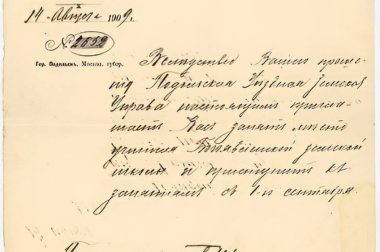 14 Августа 1909 г.
№ 2832
Гор. Подольскъ, Москов. губер.
Вслѣдствіе Вашего проше-
нія Подольская Уѣздная Земская
Управа настоящимъ пригла-
шаетъ Васъ занять мѣсто
учителя земской
школы и приступить къ
занятіямъ съ 1-го сентября.